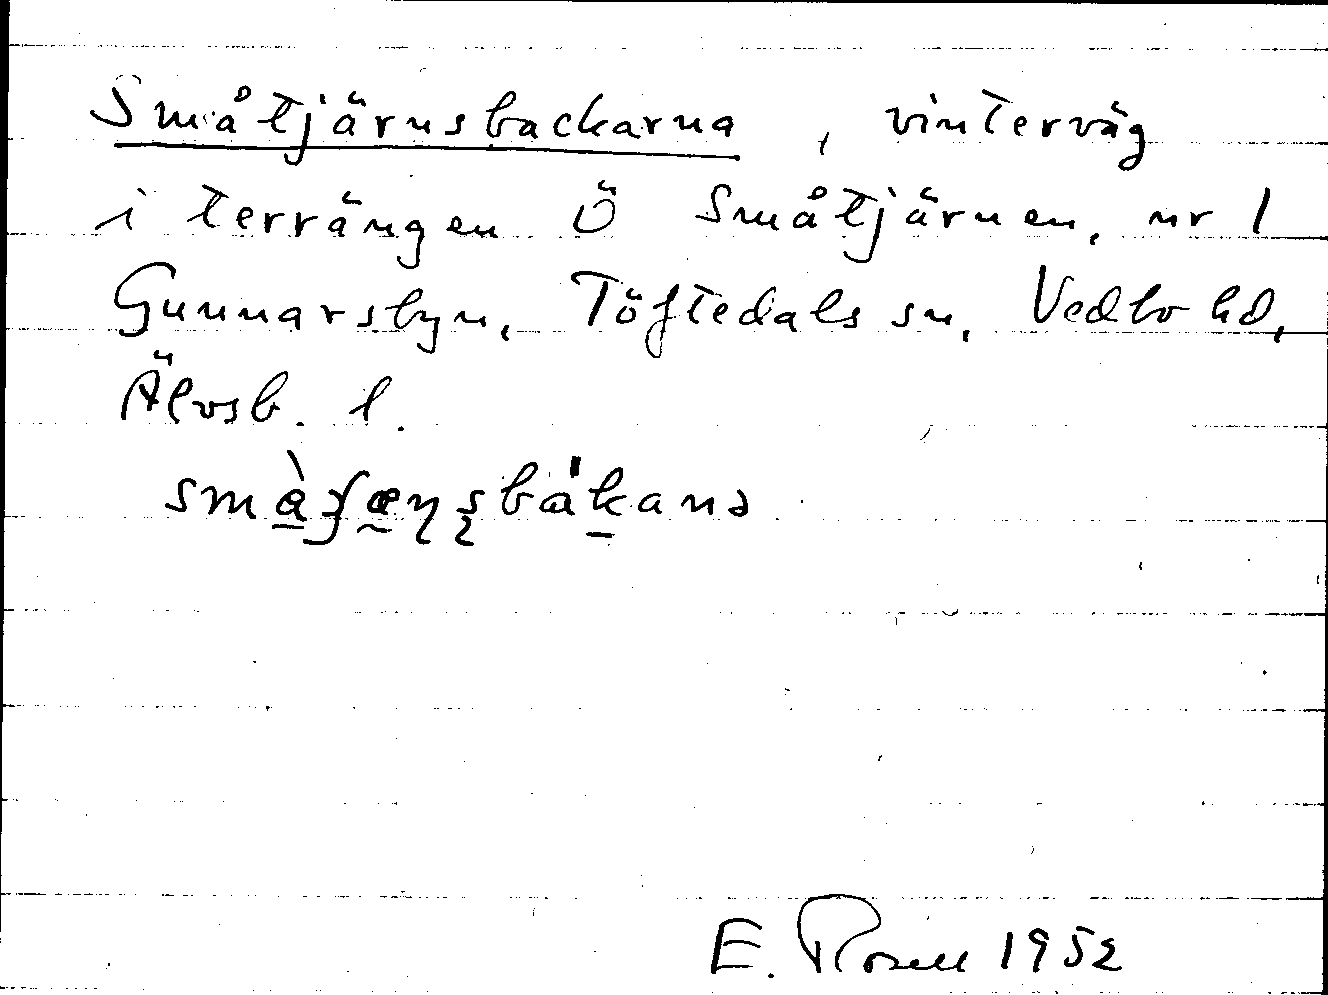 Småtjärnsbackarna, vinterväg
i terrängen Ö Småtjärnen, nr 1
Gunnarsbyn, Töftedals sn, Vedbo hd,
Älvsb. l.
E. Rosell 1952